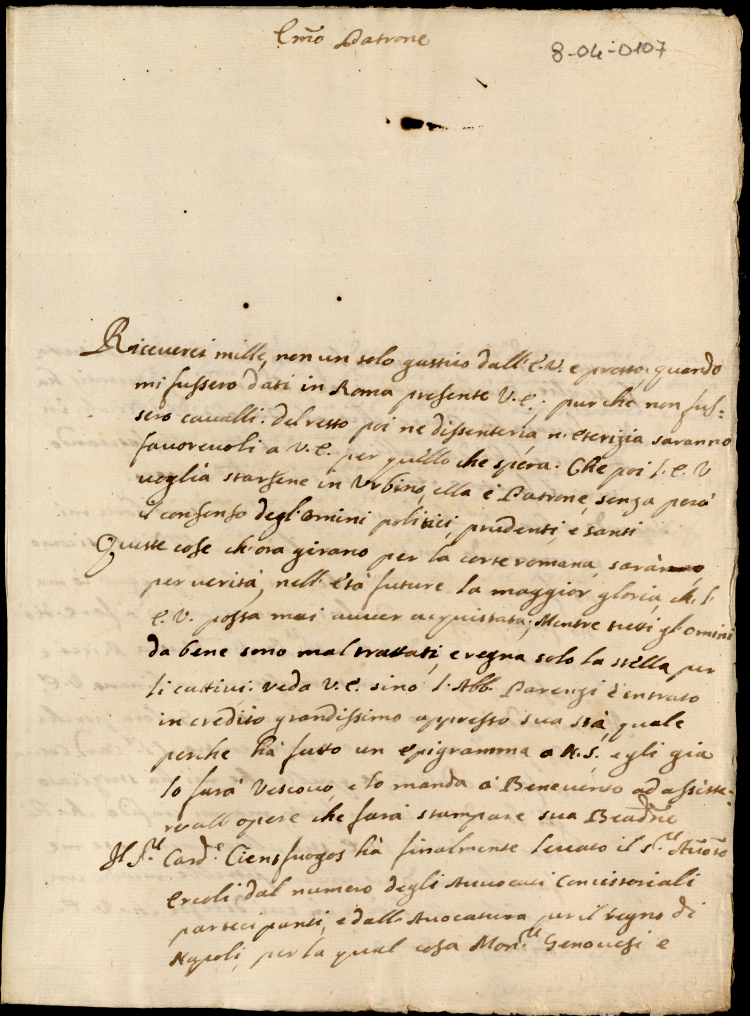 Em̃o Patrone
8-04-0107
Riceverei mille, non un solo gustivo dall'E.V. e presto; quando
mi fussero dati in Roma presente V.E.; pur che non fus=
sero cavalli. Del resto poi ne dissenteria n. eterizia saranno
favorevoli a V.E. per quello che spera. Che poi l'E.V
voglia starsene in Urbino, ella è Patrone, senza però
il consenso degl'omini politici, prudenti e santi
Queste cose ch'ora girano per la corte romana, saranno
per verità, nell'Età future la maggior gloria, ch. l'
E.V. possa mai aver acquistata; Mentre tutti gl'omini
da bene sono mal trattati, e regna solo la stella per
li cattivi. Veda V.E. sino l'Abb. Parenzi è intrato
in credito grandissimo appresso sua stà, quale
perche hà fatto un epigramma a N.S. egli già
lo farà Vescovo, e lo manda à Benevento ad assiste-
re all'opere che farà stampare sua Beadne
Il S.r Card.e Cienfuogos hà finalmente levato il S.r
Ercoli dal numero degli Avvocati Concistoriali
partecipanti, e dall'Avocatura per il regno di
Napoli, per la qual cosa Mon.r Genovesi e